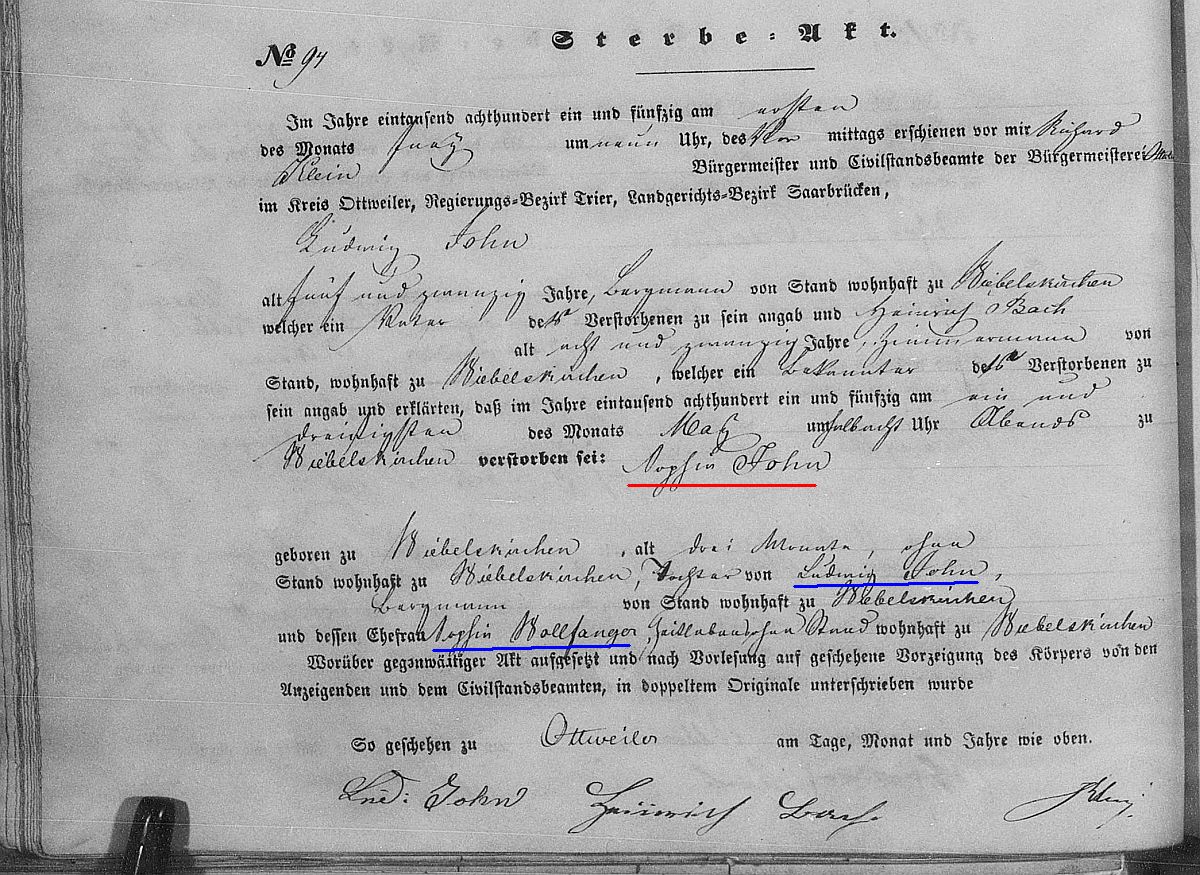 Sterbe-Akt.
№ 94
Im Jahre eintausend achthundert ein und fünfzig am ersten
des Monats Juny um neun Uhr, des Vor mittags erschienen vor mir Richard
Klein Bürgermeister und Civilstandsbeamte der Bürgermeisterei
im Kreis Ottweiler, Regierungs-Bezirk Trier, Landgerichts-Bezirk Saarbrücken,
Ludwig John
alt fünf und zwanzig Jahre, Bergmann von Stand wohnhaft zu Wiebelskirchen
welcher ein Vater der Verstorbenen zu sein angab und Heinrich Bach
alt acht und zwanzig Jahre, Zimmermann von
Stand, wohnhaft zu Wiebelskirchen, welcher ein Bekannter der Verstorbenen zu
sein angab und erklärten, daß im Jahre eintausend achthundert ein und fünfzig am ein und
dreißigsten des Monats May um halb acht Uhr Abends zu
Wiebelskirchen verstorben sei: Sophie John
geboren zu Wiebelskirchen, alt drei Monate, ohne
Stand wohnhaft zu Wiebelskirchen, Tochter von Ludwig John,
Bergmann von Stand wohnhaft zu Wiebelskirchen
und dessen Ehefrau Sophie Wollfanger, Zeitlebens ohne Stand wohnhaft zu Wiebelskirchen
Worüber gegenwärtiger Akt aufgesetzt und nach Vorlesung auf geschehene Vorzeigung des Körpers von den
Anzeigenden und dem Civilstandsbeamten, in doppeltem Originale unterschrieben wurde
So geschehen zu Ottweiler am Tage, Monat und Jahre wie oben.
Lud: John Heinrich Bach Klein